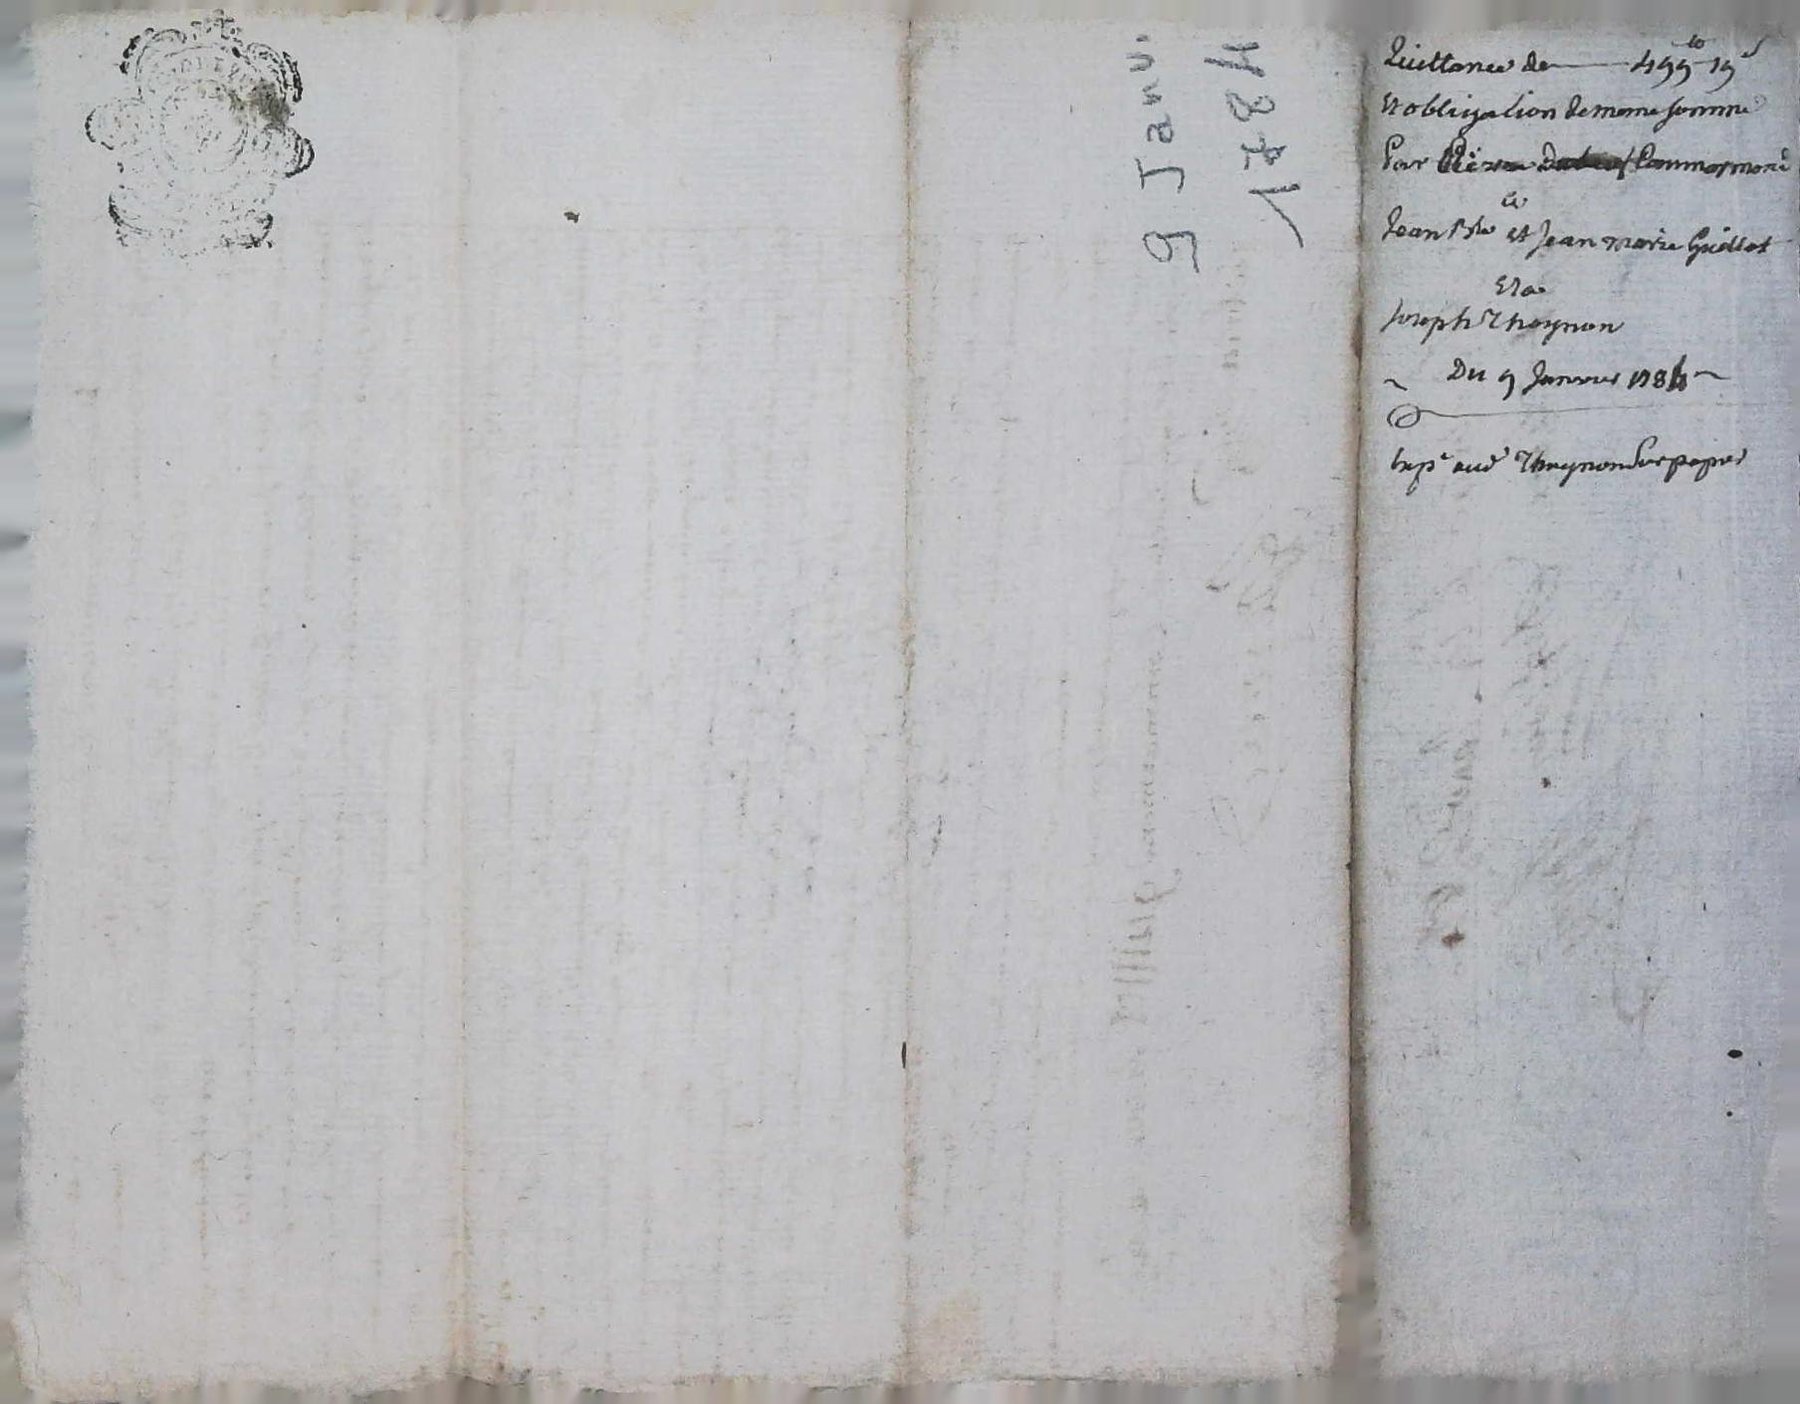 9 Janv.
1784
Quittance de 499 lt 19 s
Et obligation de meme somme
Par Pierre
Jean Bte et Jean Marie Guillot
Et a
Joseph Thoynon
Du 9 Janvier 1784
Exp. aud. Thoynon sur papier